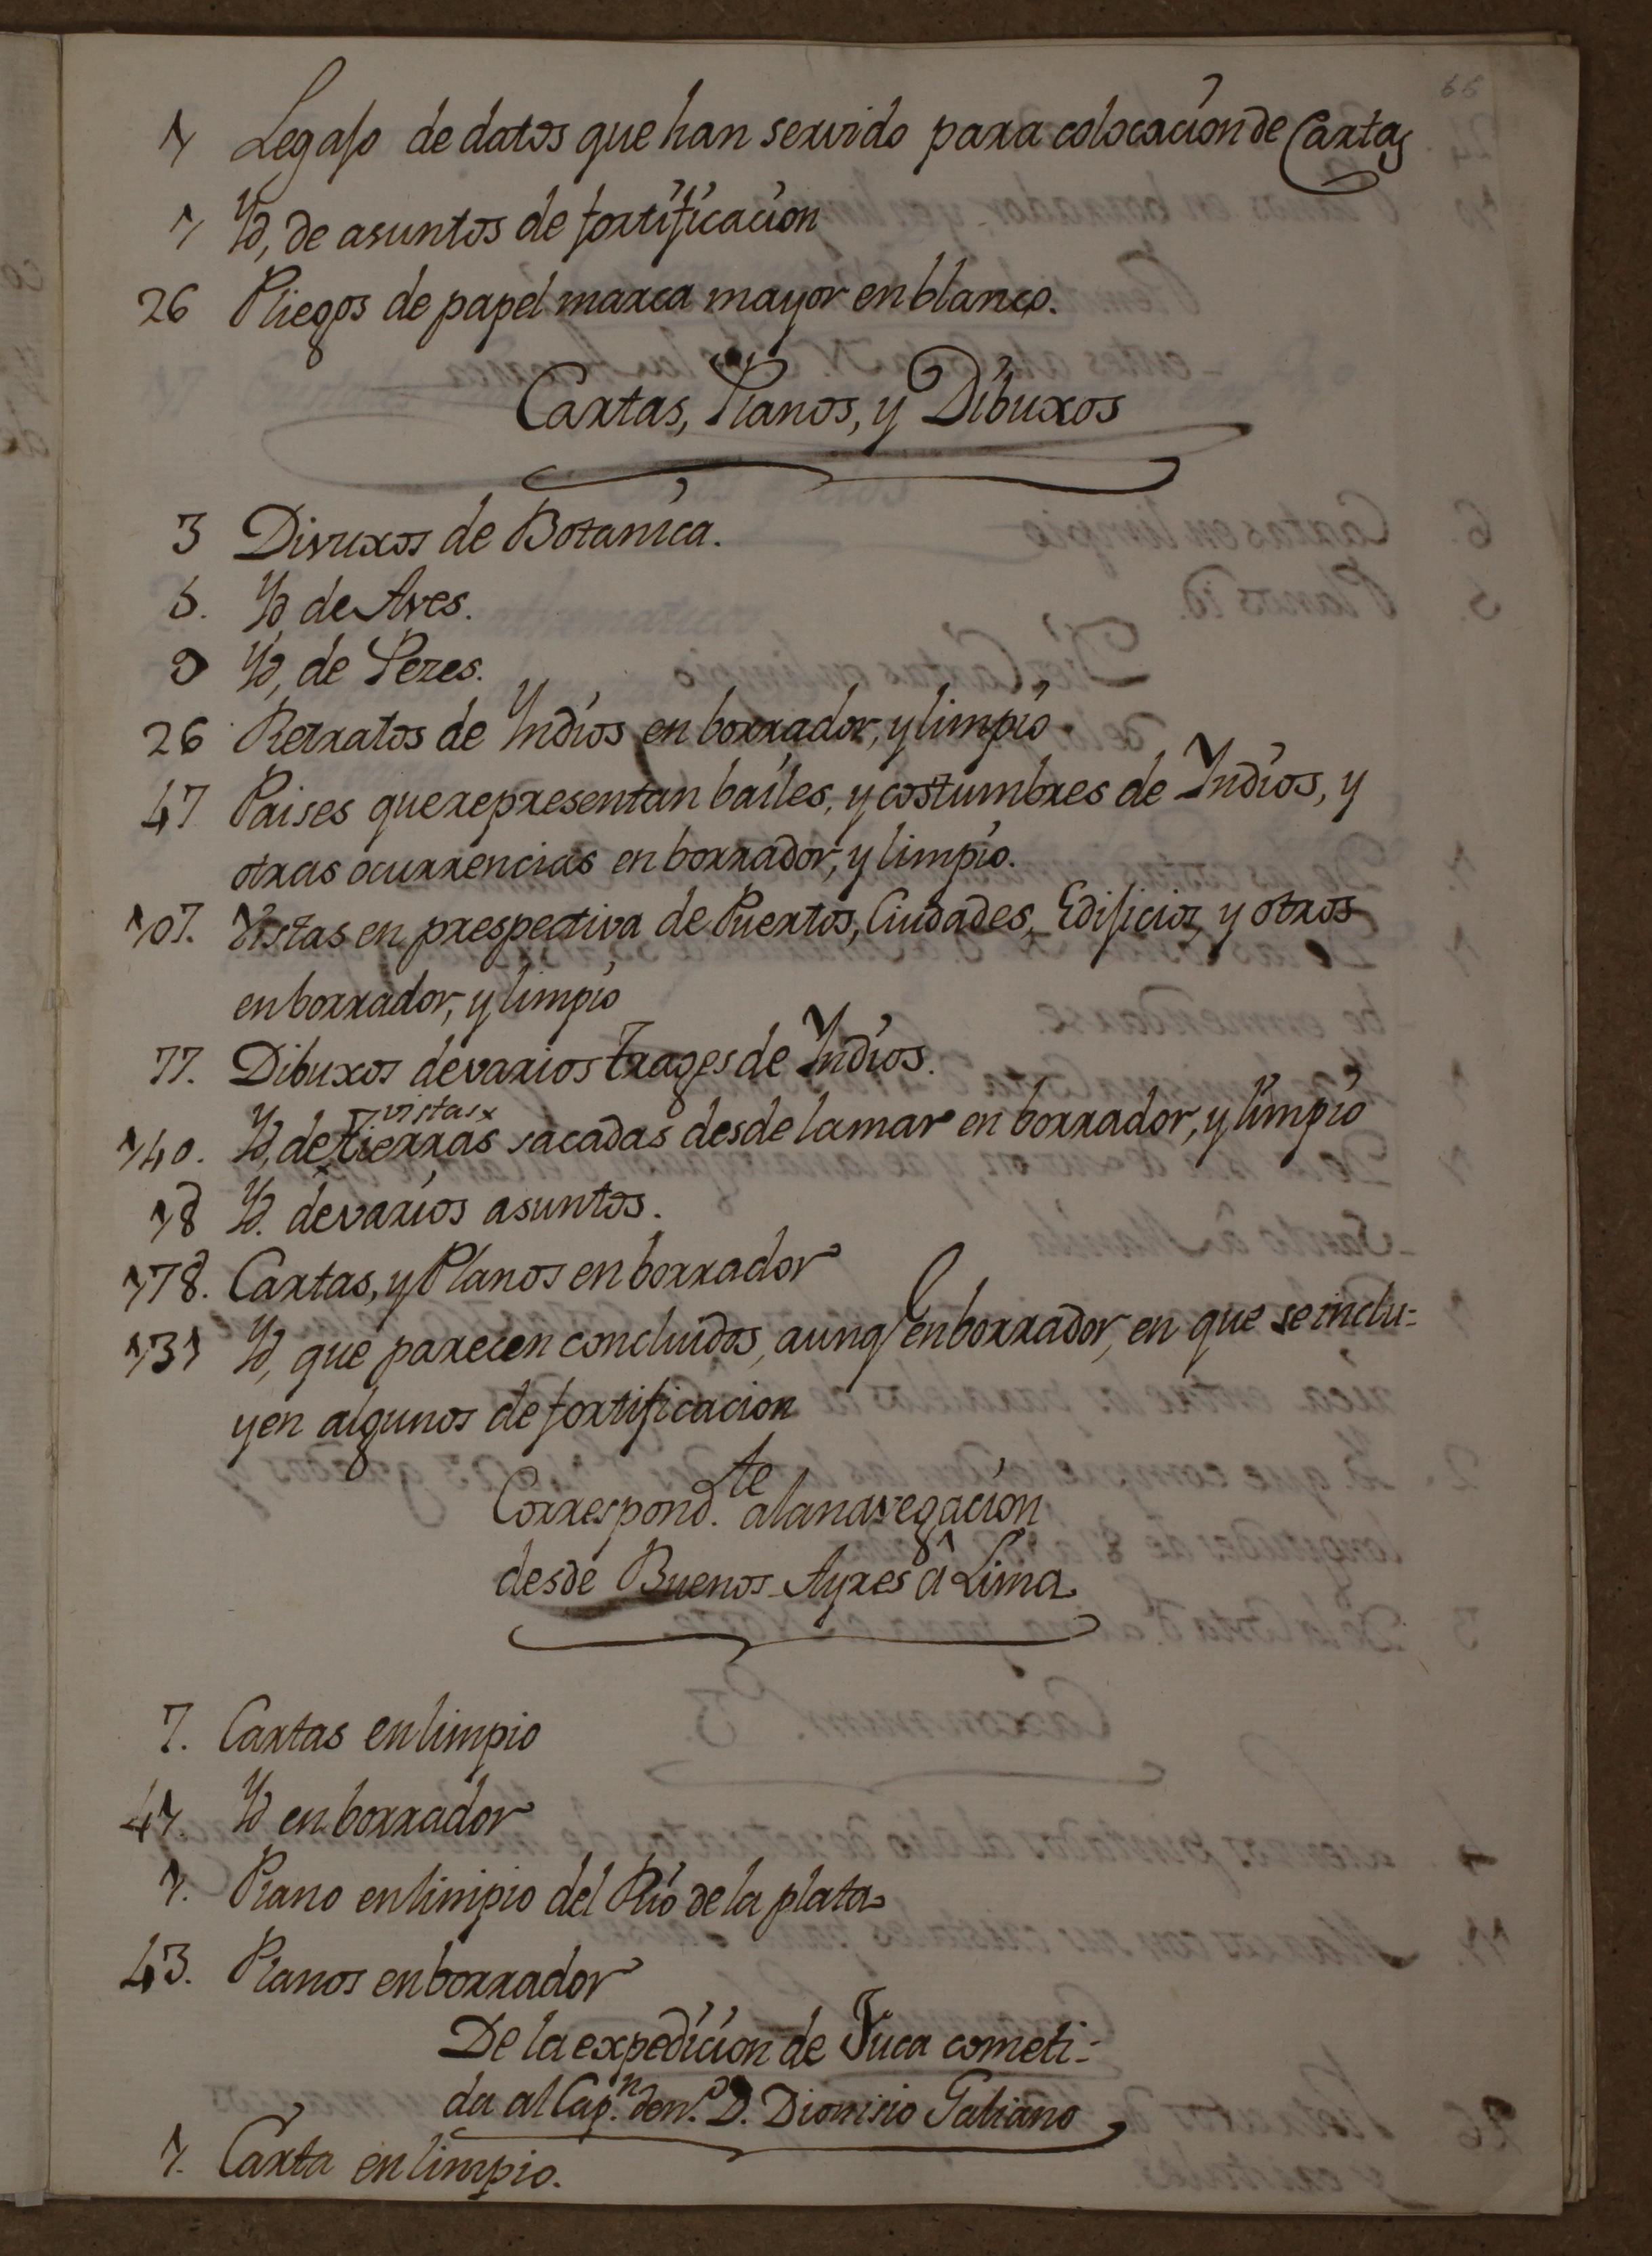 66
1 Legajo de datos que han servido para colocacion de Cartas
1 Yd, de asuntos de fortificacion
26 Pliegos de papel marca mayor en blanco.
Cartas, Planos, y Dibuxos
3 Divuxos de Botanica.
5. Yd de Aves.
9 Yd, de Pezes.
26 Retratos de Yndios en borrador, y limpio
47 Paises que representan bailes, y costumbres de Yndios, y
otras ocurrencias en borrador, y limpio.
107. Vistas en prespectiva de Puertos, Ciudades, Edificios, y otros
en borrador, y limpio
77. Dibuxos de varios trages de Yndios.
vistas
140. Yd, de tierras sacadas desde la mar en borrador, y limpio
18 Yd. de varios asuntos.
178. Cartas, y Planos en borrador
131 Yd, que parecen concluidos, aunq en borrador, en que se inclu=
yen algunos de fortificacion
Correspond.te a la navegacion
desde Buenos-Ayres â Lima
7. Cartas en limpio
41. Yd en borrador
1. Plano en limpio del Rio de la plata
43. Planos en borrador
De la expedicion de Fuca cometi=
da al Cap.n de n. D. Dionisio Galiano
1. Carta en limpio.